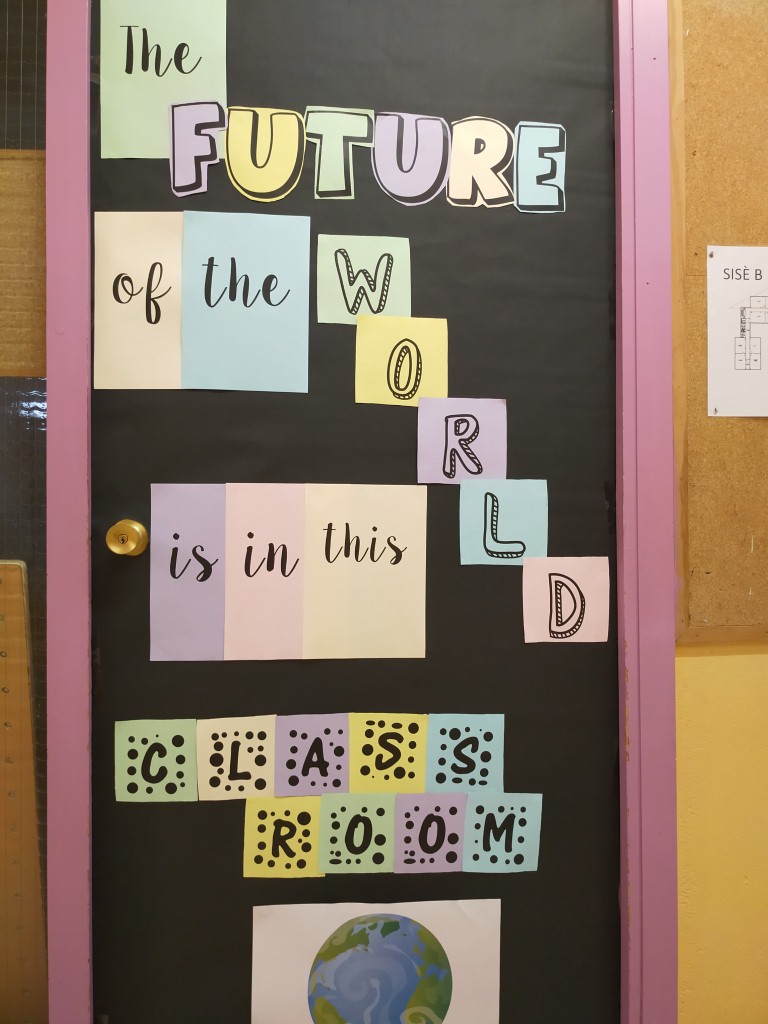 The
FUTURE
of the WORLD
is in this
CLASS
ROOM
SISÈ B